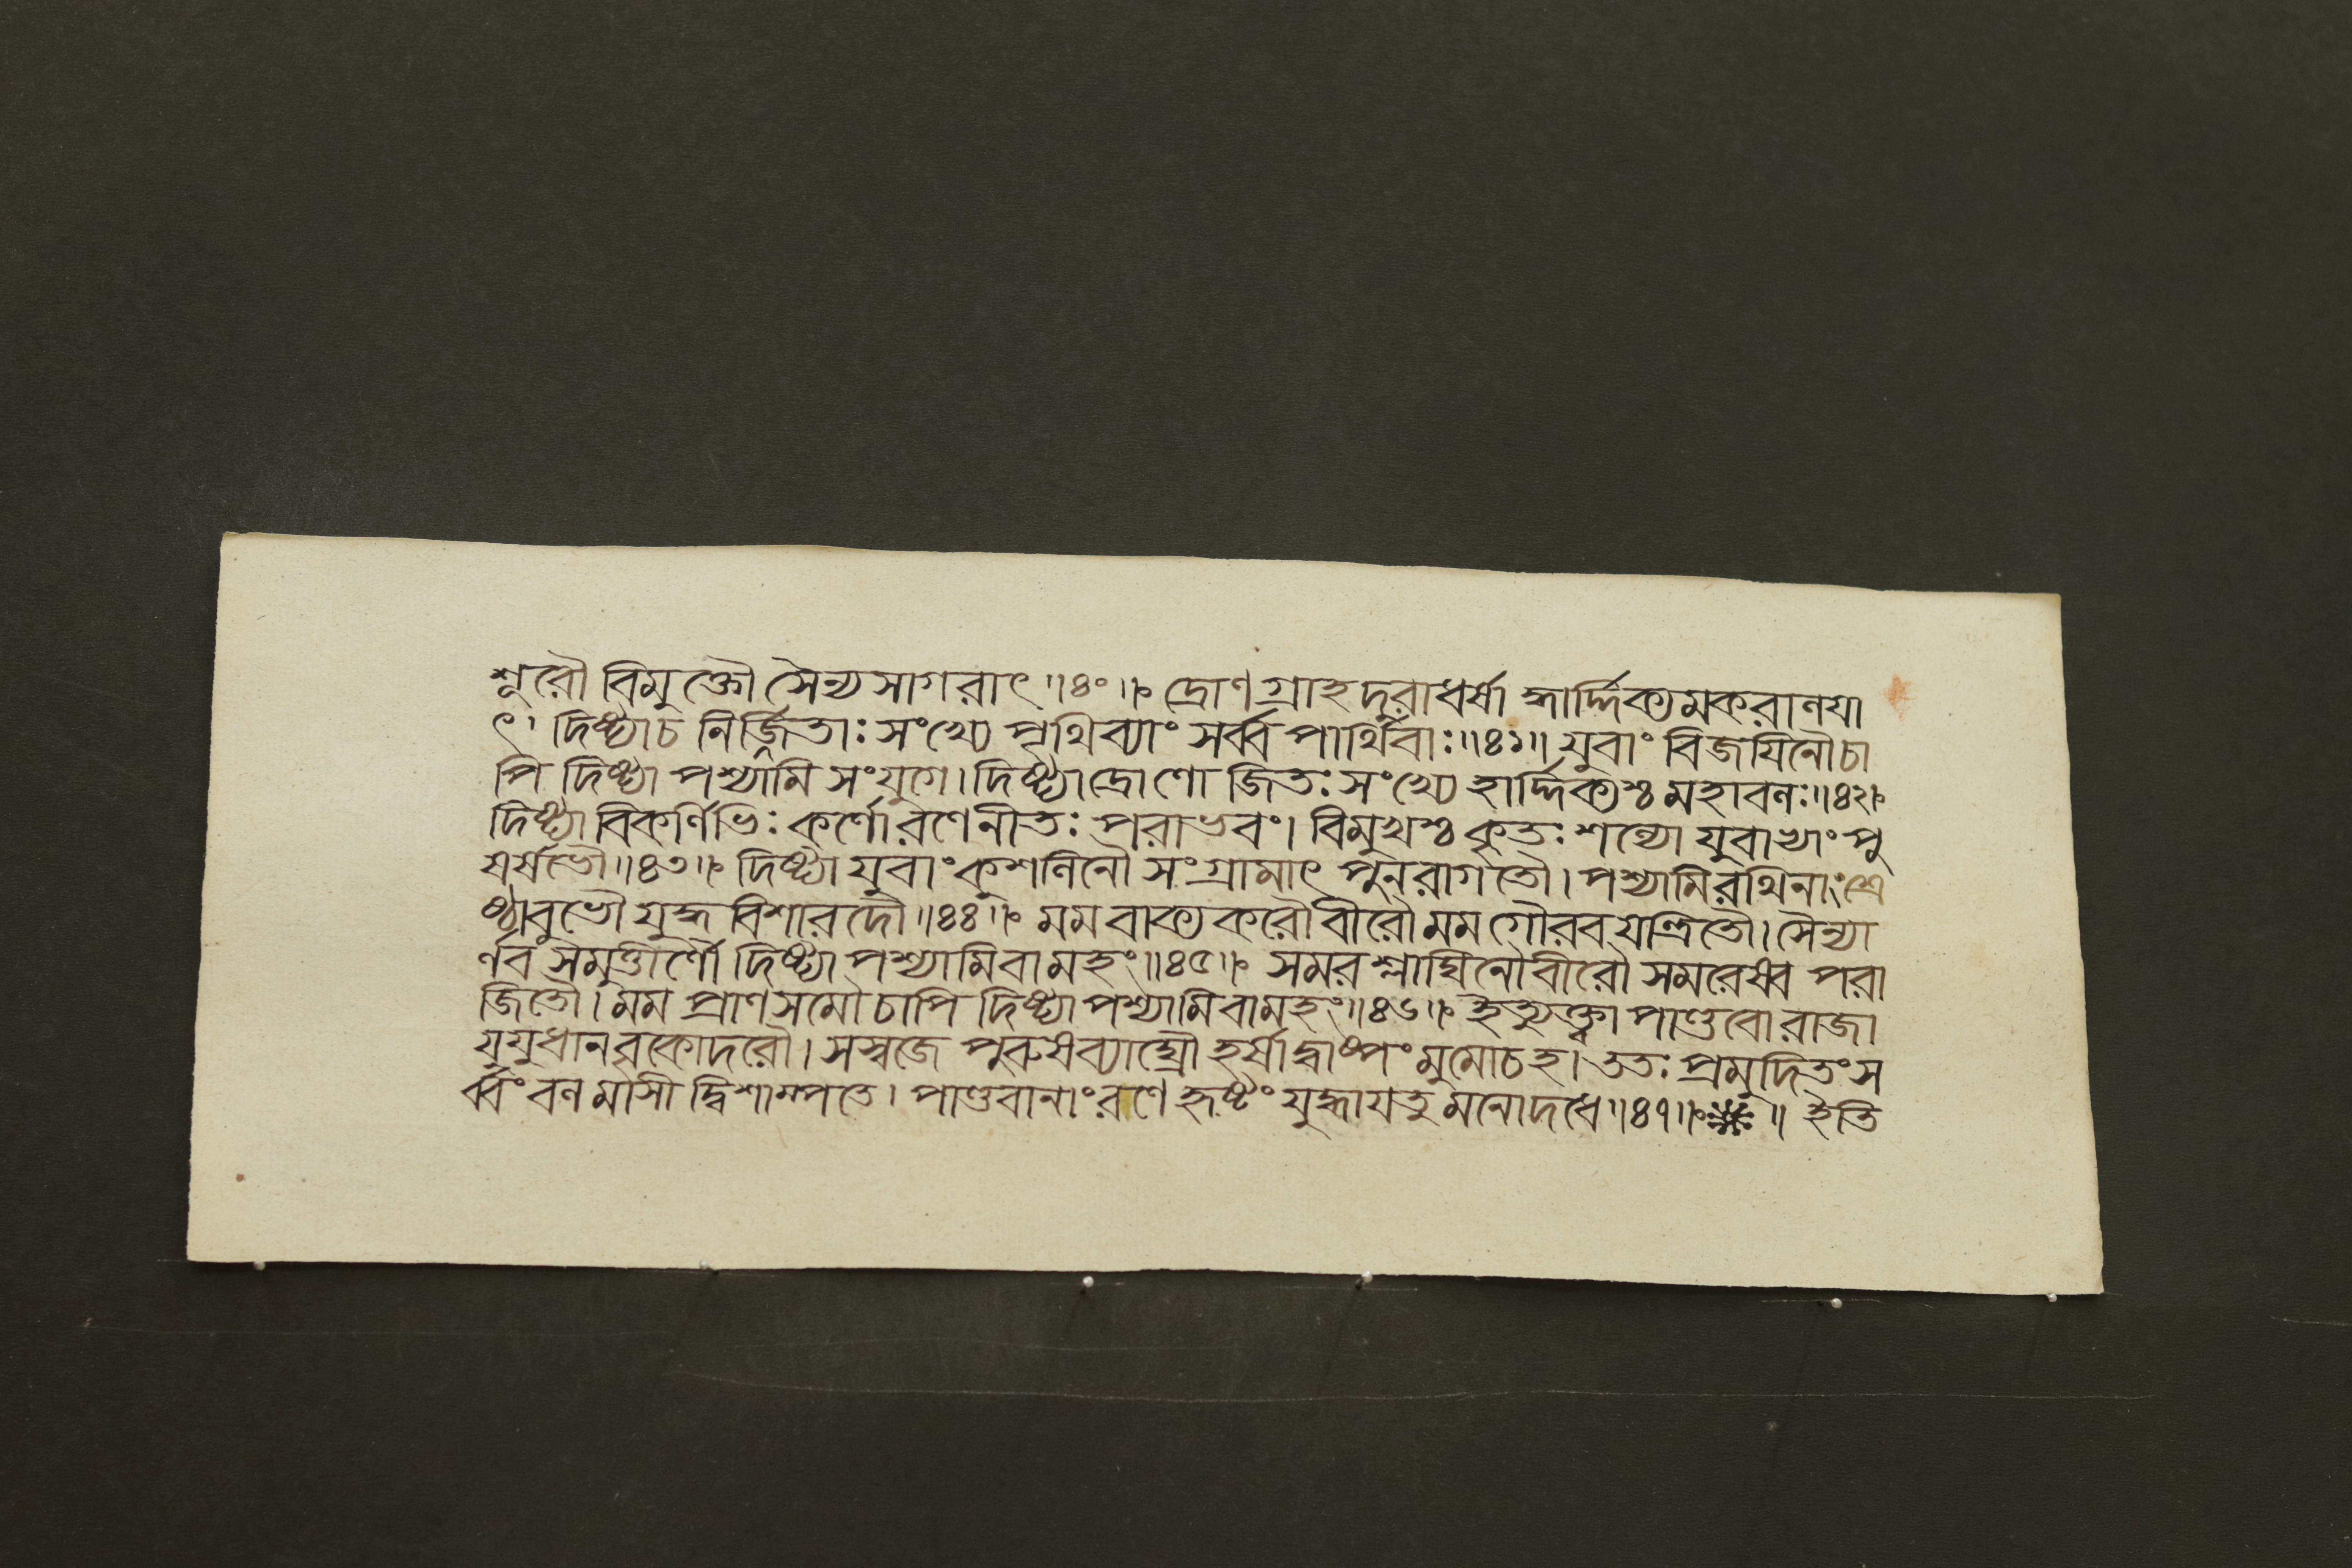 শূরৌ বিমুক্তৌ সৈন্যসাগরাৎ ॥৪০॥ দ্রোণগ্রাহদুরাধর্ষা হার্দ্দিক্যমকরাণযা
ৎ। দিষ্ট্যাচ নির্জ্জিতাঃ সংখ্যে পৃথিব্যাং সর্ব্বপার্থিবাঃ ॥৪১॥ যুবাং বিজযিনৌচা
পি দিষ্ট্যা পশ্যামি সংযুগে। দিষ্ট্যাদ্রোণো জিতঃ সংখ্যে হার্দ্দিক্যশ্চ মহাবলঃ॥৪২॥
দিষ্ট্যা বিকর্ণিভিঃ কর্ণো রণেনীতঃ পরাভবং। বিমুখশ্চ কৃতঃ শল্যো যুবাভ্যাং পু
রুষর্ষভৌ॥৪৩॥ দিষ্ট্যা যুবাং কুশলিনৌ সংগ্রামাৎ পুনরাগতৌ। পশ্যামিরথিনাং শ্রে
ষ্ঠাবুভৌ যুদ্ধবিশারদৌ ॥৪৪॥ মম বাক্যকরৌ বীরৌ মম গৌরবযন্ত্রিতৌ। সৈন্যা
র্ণবসমুত্তীর্ণৌ দিষ্ট্যা পশ্যামিবামহং॥৪৫॥ সমরশ্লাঘিনৌবীরৌ সমরেষ্ব পরা
জিতৌ। মম প্রাণসমৌ চাপি দিষ্ট্যা পশ্যামিবামহং॥৪৬॥ ইত্যুক্ত্বা পাণ্ডবো রাজা
যুযুধানবৃকোদরৌ। সস্বজে পুরুষব্যাঘ্রৌ হর্ষাদ্বাষ্পং মুমোচহ। ততঃ প্রমুদিতং স
র্ব্বং বলমাসী দ্বিশাম্পতে। পাণ্ডবানাং রণে হৃষ্টং যুদ্ধাযতু মনোদধে ॥৪৭॥ ॥ ইতি